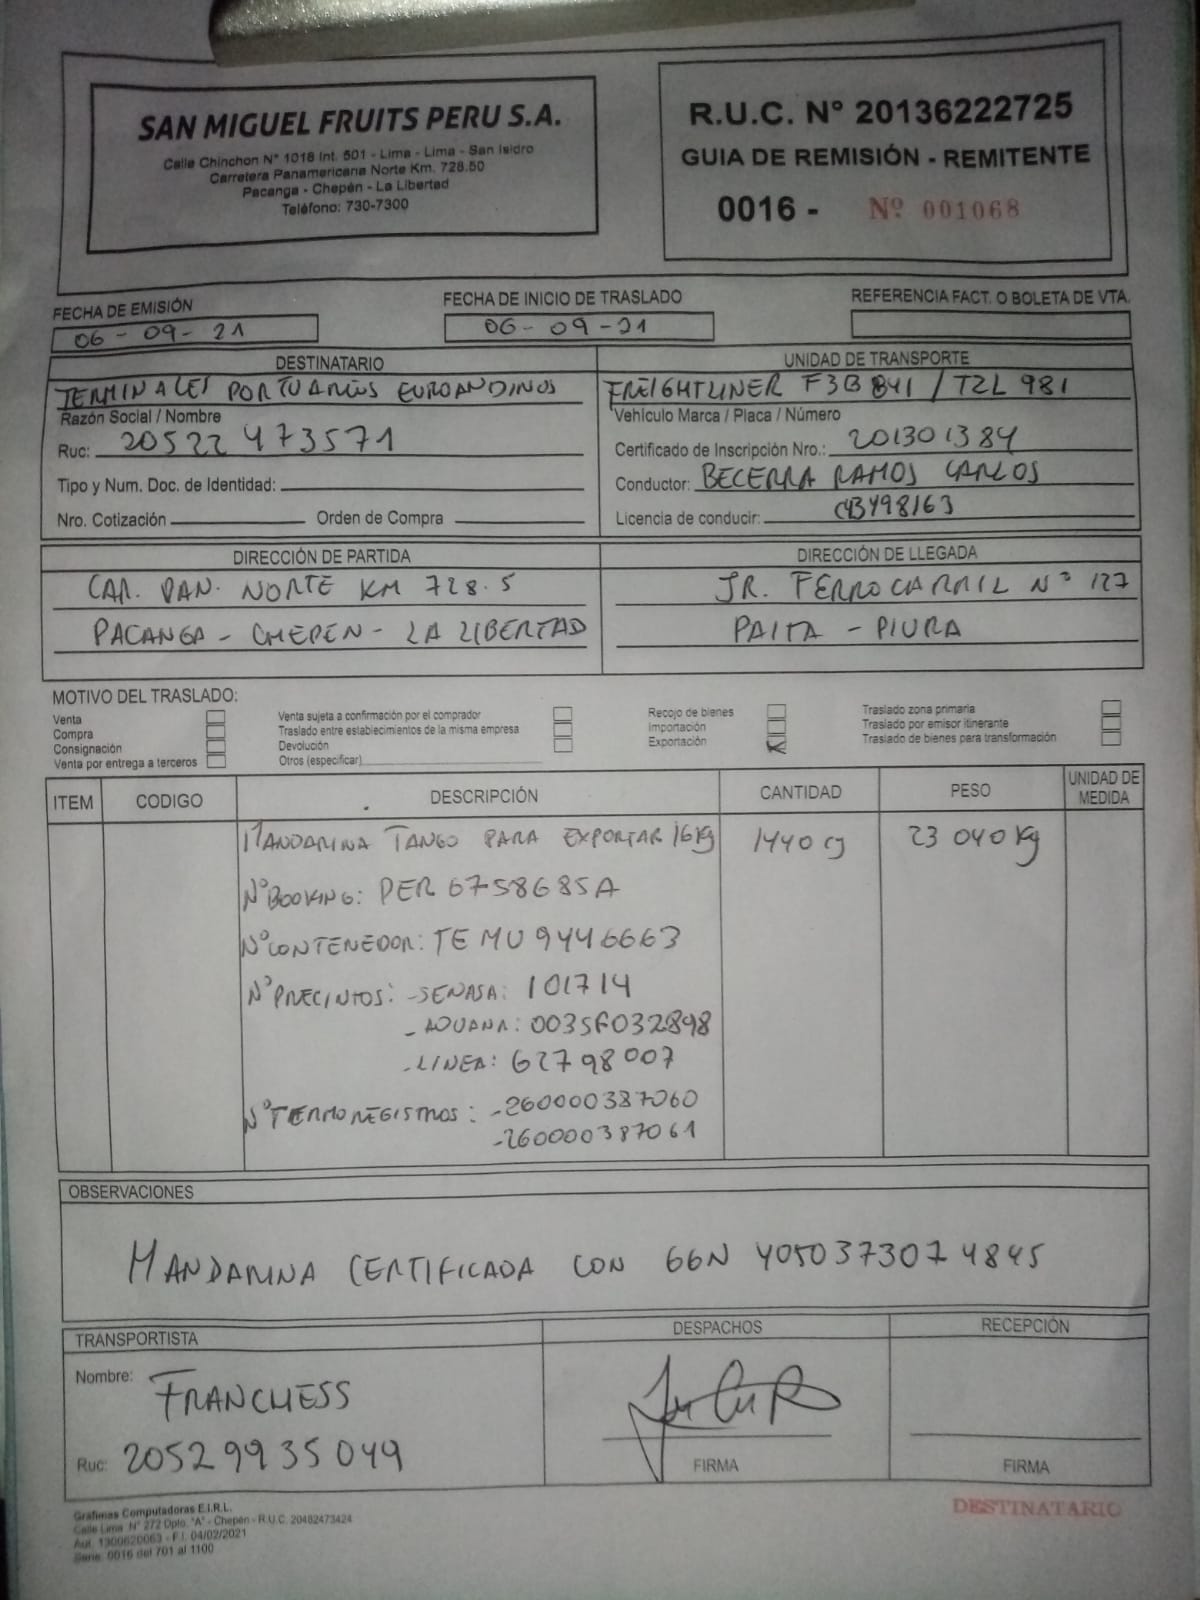 SAN MIGUEL FRUITS PERU S.A.
Calle Chinchon N° 1018 Int. 501 - Lima - Lima - San Isidro
Carretera Panamericana Norte Km. 728.50
Pacanga - Chepén - La Libertad
Teléfono: 730-7300
R.U.C. N° 20136222725
GUIA DE REMISIÓN - REMITENTE
0016 - Nº 001068
FECHA DE EMISIÓN
06-09-21
FECHA DE INICIO DE TRASLADO
06-09-21
REFERENCIA FACT. O BOLETA DE VTA.
DESTINATARIO
TERMINALES PORTUARIOS EUROANDINOS
Razón Social / Nombre
Ruc: 20522473571
Tipo y Num. Doc. de Identidad:
Nro. Cotización Orden de Compra
UNIDAD DE TRANSPORTE
FREIGHTLINER F3B 841 / T2L 981
Vehículo Marca / Placa / Número
Certificado de Inscripción Nro.: 201301384
Conductor: BECERRA RAMOS CARLOS
Licencia de conducir:
DIRECCIÓN DE PARTIDA
CAR. PAN. NORTE KM 728.5
PACANGA - CHEPEN - LA LIBERTAD
DIRECCIÓN DE LLEGADA
JR. FERROCARRIL N° 127
PAITA - PIURA
MOTIVO DEL TRASLADO:
Venta
Compra
Consignación
Venta por entrega a terceros
Venta sujeta a confirmación por el comprador
Traslado entre establecimientos de la misma empresa
Devolución
Otros (especificar)
Recojo de bienes
Importación
Exportación
Traslado zona primaria
Traslado por emisor itinerante
Traslado de bienes para transformación
ITEM CODIGO DESCRIPCIÓN CANTIDAD PESO UNIDAD DE MEDIDA
MANDARINA TANGO PARA EXPORTAR 16Kg 1440 cj 23 040 Kg
N° BOOKING: PER 6758685A
N° CONTENEDOR: TEMU 9446663
N° PRECINTOS: - SENASA: 101714
- ADUANA: 0035F032898
- LINEA: 62798007
N° TERMOREGISTROS: - 260000387060
- 260000387061
OBSERVACIONES
MANDARINA CERTIFICADA CON GGN 4050373074845
TRANSPORTISTA
Nombre: FRANCHESS
Ruc: 20529935049
DESPACHOS
FIRMA
RECEPCIÓN
FIRMA
Grafimas Computadoras E.I.R.L.
Calle Lima N° 272 Dpto. "A" - Chepén - R.U.C. 20482473424
Aut. 1300620063 - F.I. 04/02/2021
Serie: 0016 del 701 al 1100
DESTINATARIO